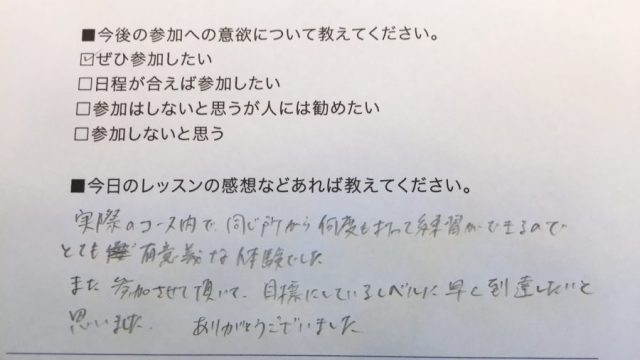 ■今後の参加への意欲について教えてください。
☑ぜひ参加したい
□日程が合えば参加したい
□参加はしないと思うが人には勧めたい
□参加しないと思う
■今日のレッスンの感想などあれば教えてください。
実際のコース内で、同じ所から何度も打って練習ができるので
とても 有意義な体験でした
また 参加させて頂いて、目標にしているレベルに早く到達したいと
思いました。 ありがとうございました